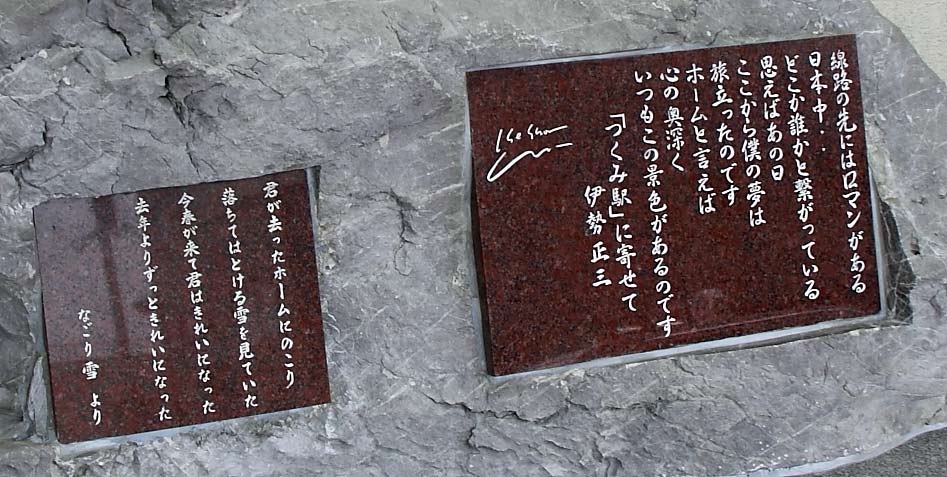 線路の先にはロマンがある
日本中・・
どこか誰かと繋がっている
思えばあの日
ここから僕の夢は
旅立ったのです
ホームと言えば
心の奥深く
いつもこの景色があるのです
「つくみ駅」に寄せて
伊勢正三
君が去ったホームにのこり
落ちてはとける雪を見ていた
今春が来て君はきれいになった
去年よりずっときれいになった
なごり雪 より